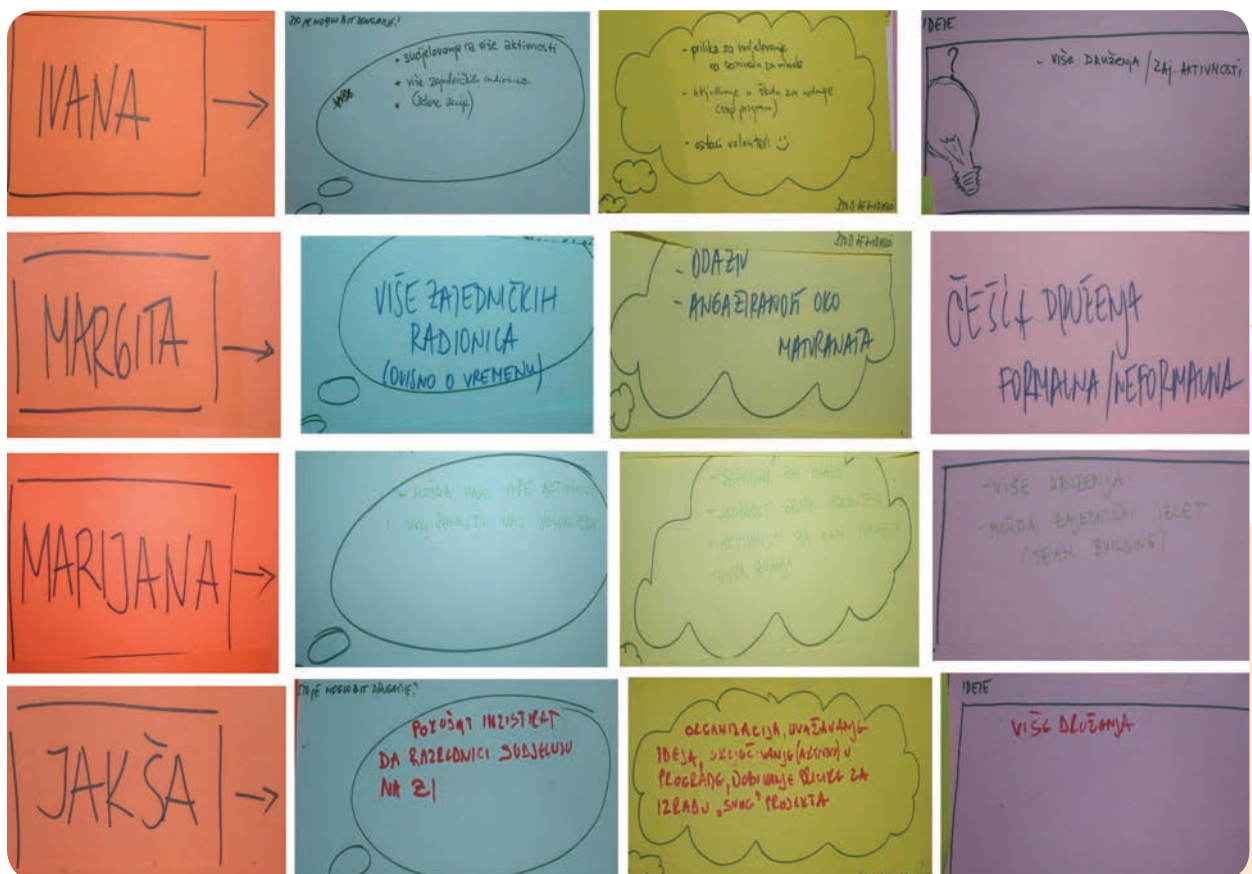 IVANA
ŠTO JE MOGLO BIT DRUGAČIJE?
• sudjelovanje na više aktivnosti
• više zajedničkih
•
- prilika za sudjelovanje
na seminaru za mlade
- uključivanje u školu za
program)
• ostali volonteri
ŠTO JE
IDEJE
?
- VIŠE DRUŽENJA / ZAJ. AKTIVNOSTI
MARGITA
VIŠE ZAJEDNIČKIH
RADIONICA
(OVISNO O VREMENU)
ŠTO JE
- ODAZIV
- ANGAŽIRANOST OKO
MATURANATA
ČEŠĆA DRUŽENJA
FORMALNA/NEFORMALNA
MARIJANA
- MOŽDA VIŠE AKTIVNOSTI
I UKLJUČENOSTI NAS VOLONTERA
- SEMINAR ZA MLADE
GRUPE VOLONTERA
- AKTIVNOST ZA DAN
- NOVA ZNANJA
- VIŠE DRUŽENJA
- MOŽDA ZAJEDNIČKI IZLET
(TEAM BUILDING)
JAKŠA
ŠTO JE MOGLO BIT DRUGAČIJE?
POKUŠAT INZISTIRAT
DA RAZREDNICI SUDJELUJU
NA ZI
ORGANIZACIJA, UVAŽAVANJE
IDEJA, UKLJUČIVANJE (AKTIVNO) U
PROGRAME, DOBIVANJE PRILIKE ZA
IZRADU „SVOG" PROJEKTA
IDEJE
VIŠE DRUŽENJA